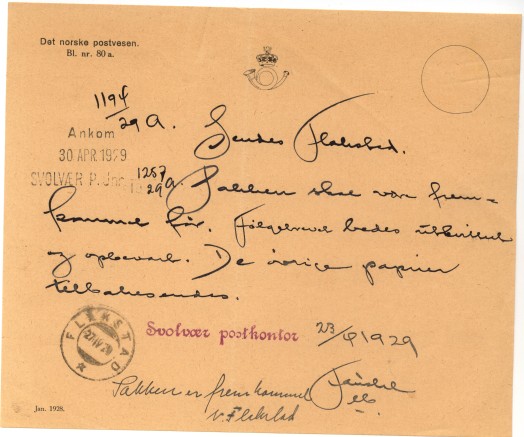 Det norske postvesen.
Bl. nr. 80 a.
1194
/29 A.
Sendes Flakstad.
Ankom
30 APR. 1929
SVOLVÆR P. Jnr. 1287
/29 A
Pakken skal være frem-
kommet før. Følgebrevet bedes utkvittert
og opbevart. De övrige papirer
tilbakesendes.
FLAKSTAD
27 IV 29
Svolvær postkontor 23/4 1929
Pakken er fremkommet
v. Flakstad
Jan. 1928.